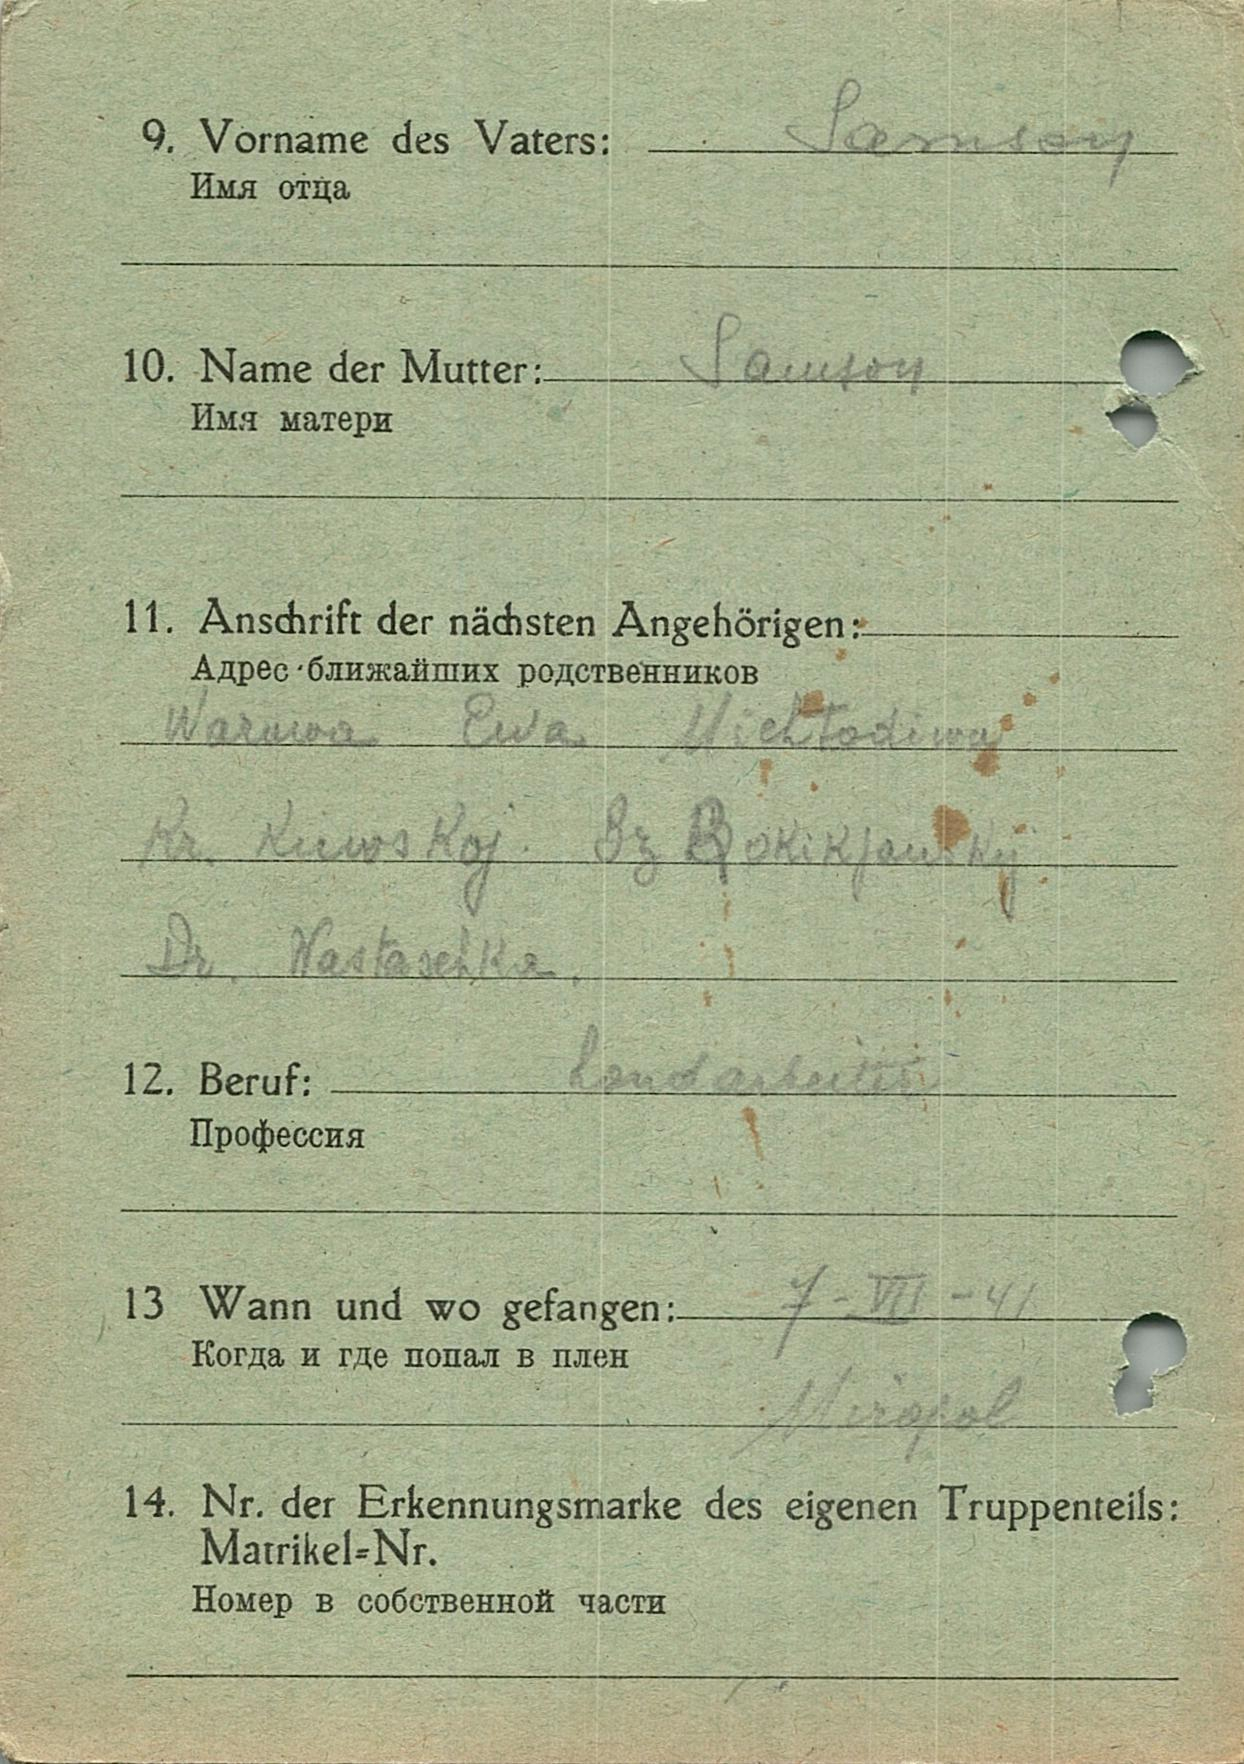 9. Vorname des Vaters: Samson
Имя отца
10. Name der Mutter: Samson
Имя матери
11. Anschrift der nächsten Angehörigen:
Адрес ближайших родственников
Waruwa Ewa Michtodiwa
Kr. Kiiwskoj. Bz Rokikjansky
Dr. Nastaschka.
12. Beruf: Landarbeiter
Профессия
13 Wann und wo gefangen: 7-VII-41
Когда и где попал в плен
Miropol
14. Nr. der Erkennungsmarke des eigenen Truppenteils:
Matrikel-Nr.
Номер в собственной части